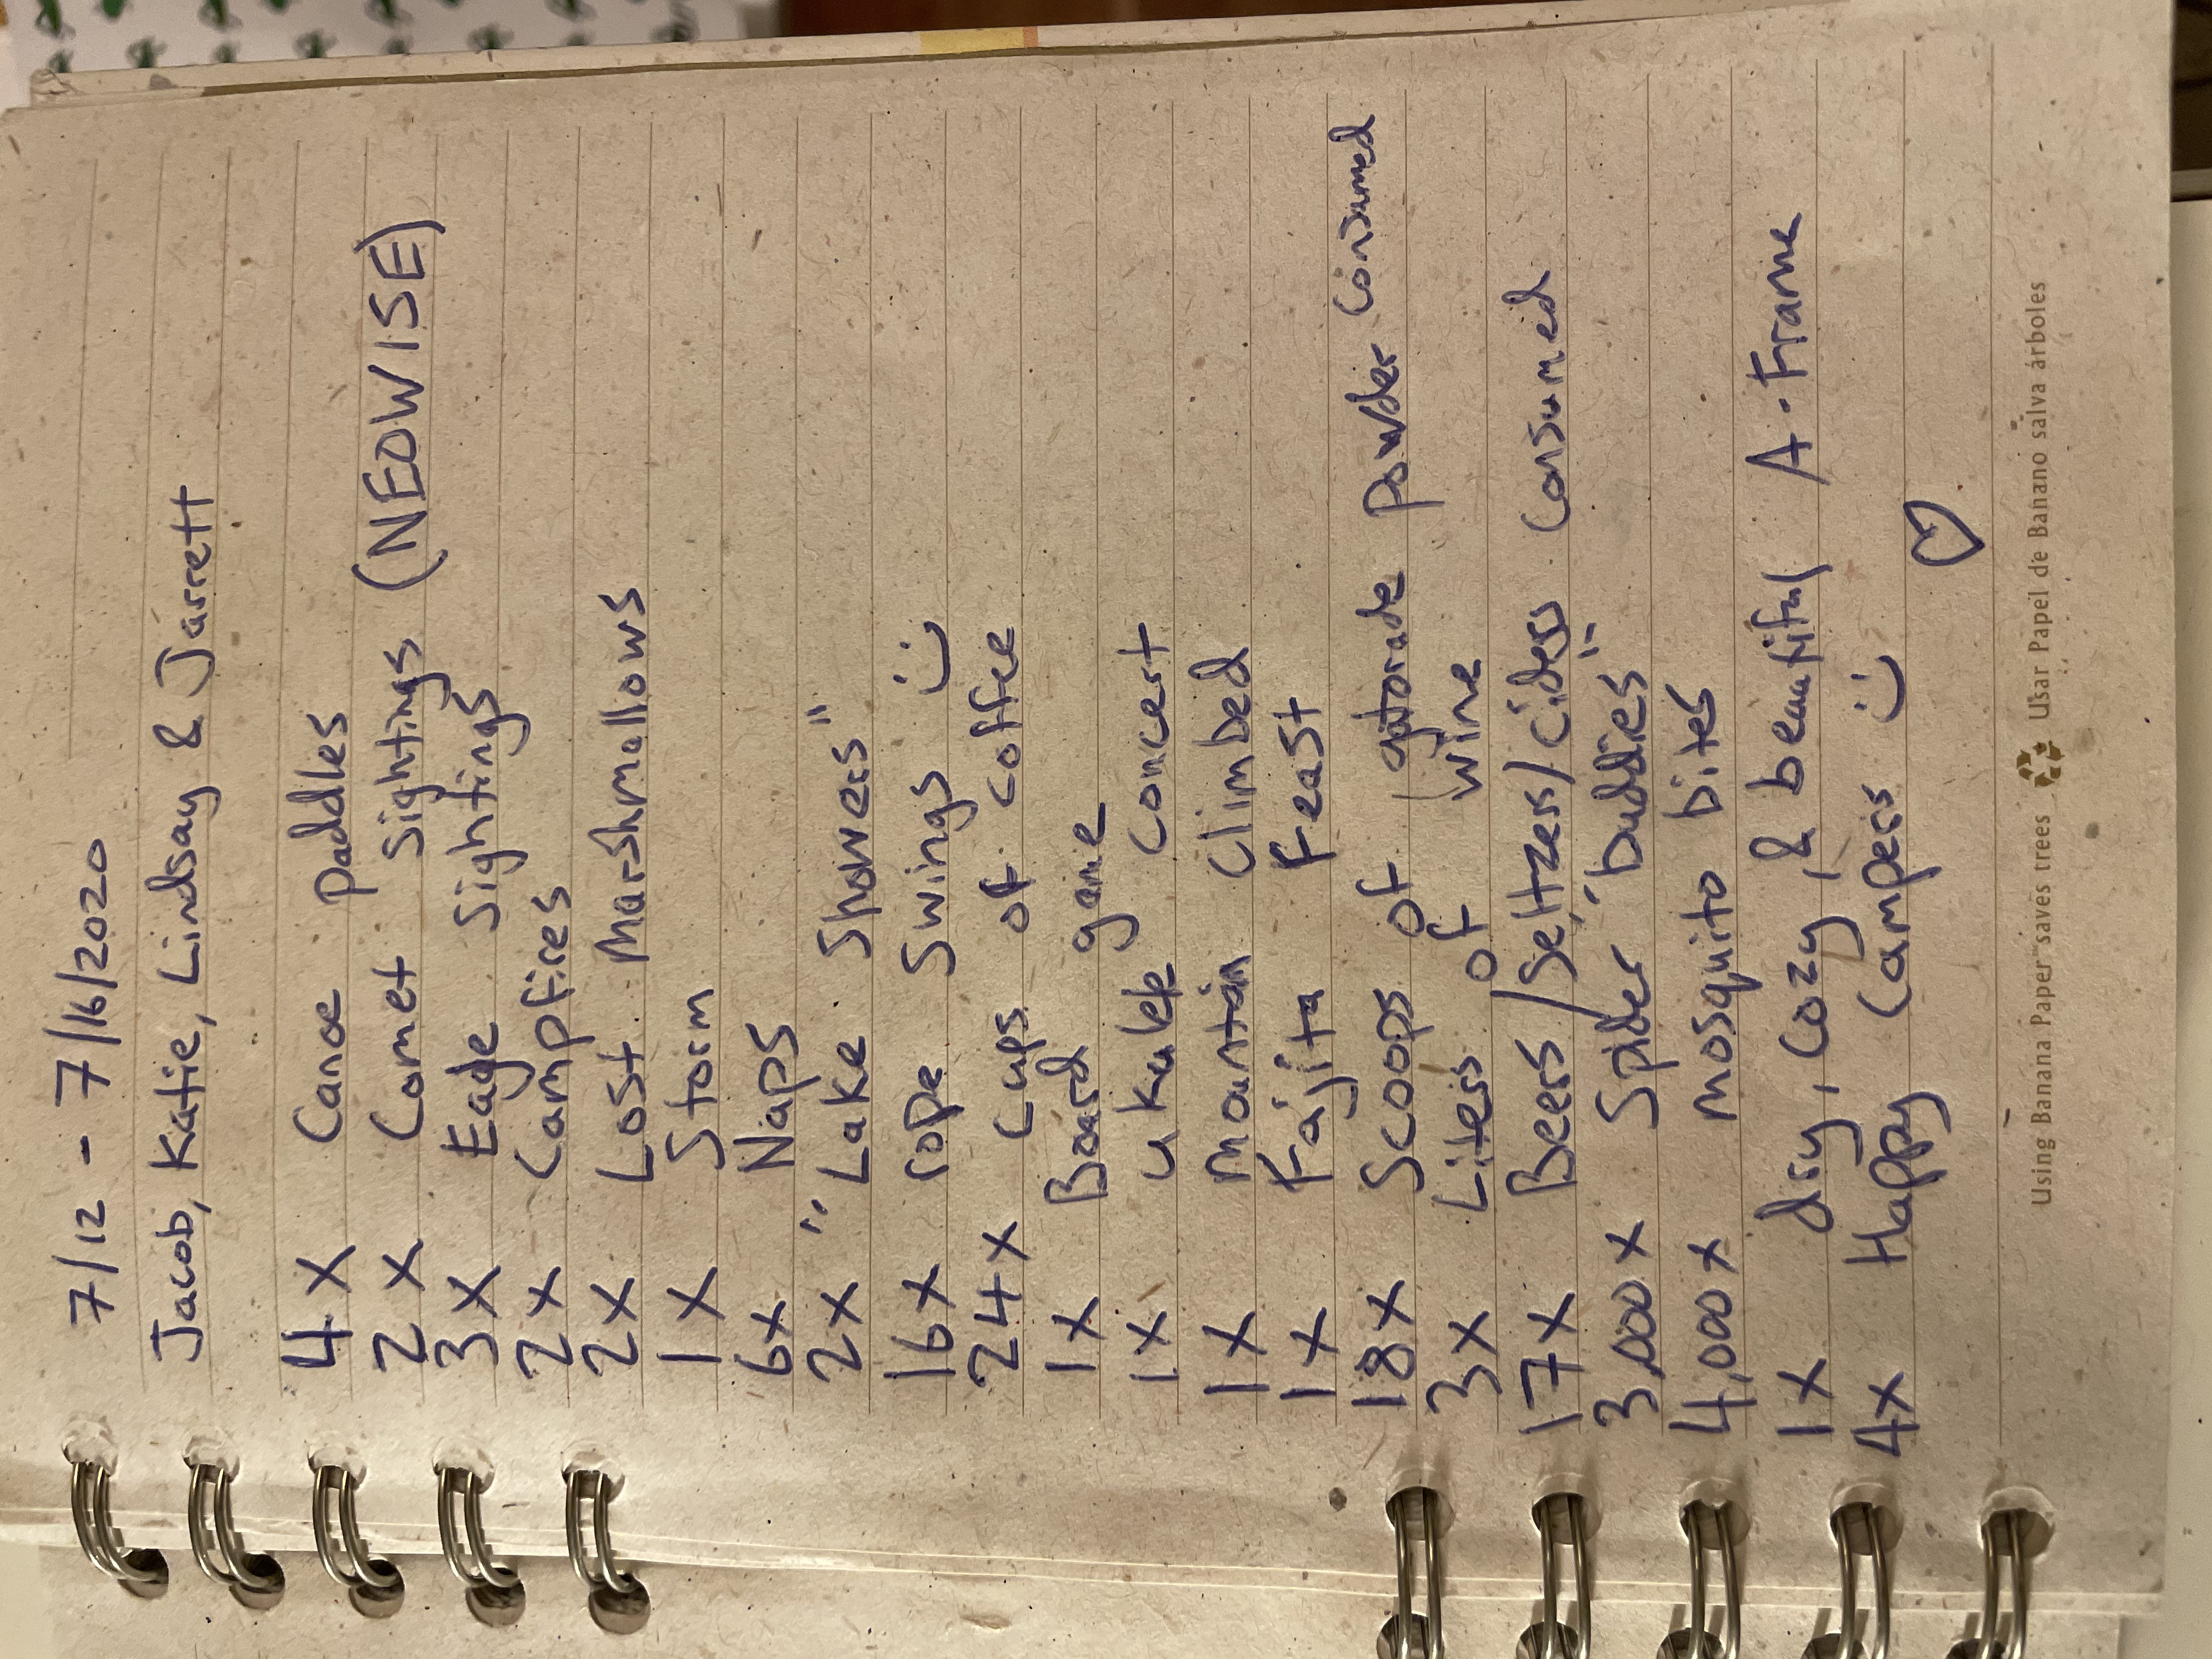 7/12 - 7/16/2020
Jacob, Katie, Lindsay & Jarrett
4x Canoe paddles
2x Comet Sightings (NEOWISE)
3x Eagle Sightings
2x Campfires
2x Lost Marshmallows
1x Storm
6x Naps
2x "Lake Showers"
16x rope Swings :)
24x cups of coffee
1x Board game
1x ukulele concert
1x mountain climbed
1x Fajita Feast
18x Scoops of gatorade powder consumed
3x Liters of wine
17x Beers/Seltzers/ciders consumed
3,000x Spider "buddies"
4,000x mosquito bites
1x dry, cozy, & beautiful A-Frame
4x Happy Campers :) ♡
Using Banana Paper saves trees ♻ Usar Papel de Banano salva árboles